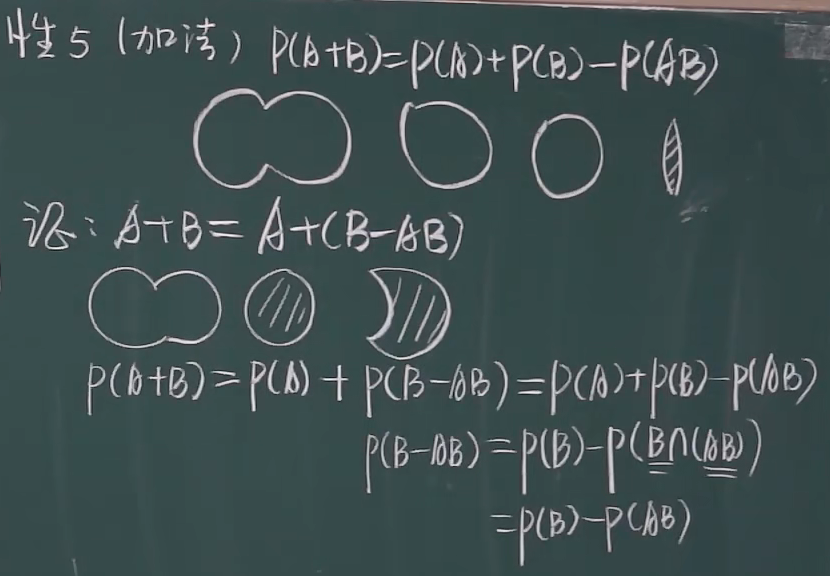 性5(加法) P(A+B)=P(A)+P(B)-P(AB)
证: A+B=A+(B-AB)
P(A+B)=P(A)+P(B-AB)=P(A)+P(B)-P(AB)
P(B-AB)=P(B)-P(B∩(AB))
=P(B)-P(AB)